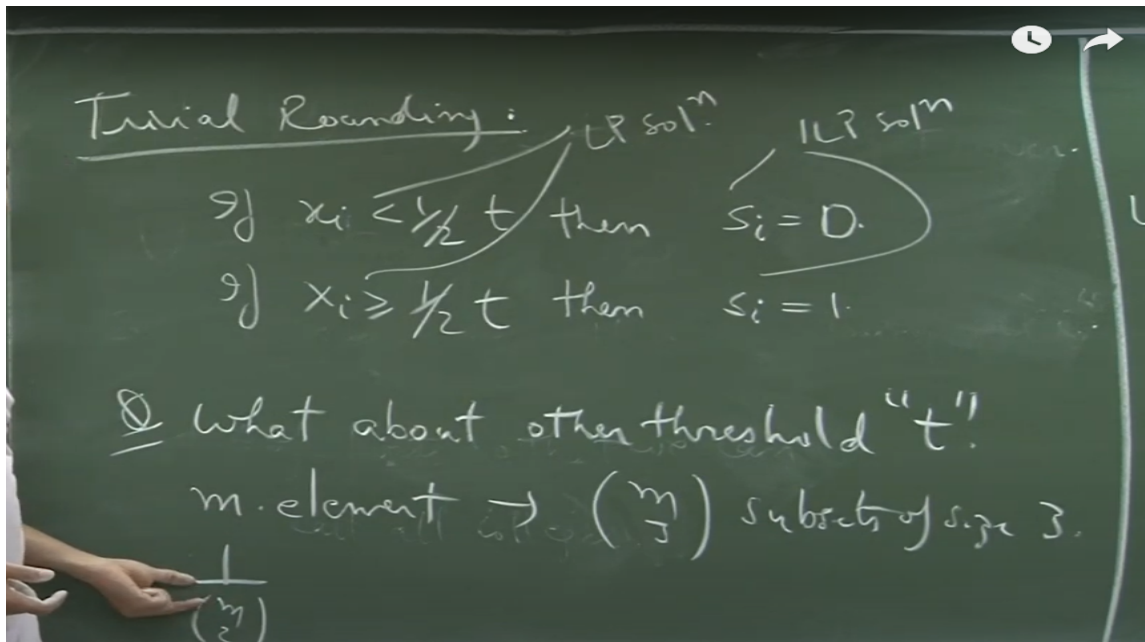 Trivial Rounding: LP solⁿ. ILP solⁿ
If xᵢ < 1/2 t then sᵢ = 0.
If xᵢ ≥ 1/2 t then sᵢ = 1.
Q What about other threshold "t"?
m. element → (m 3) subsets of size 3.
1
(m 2)